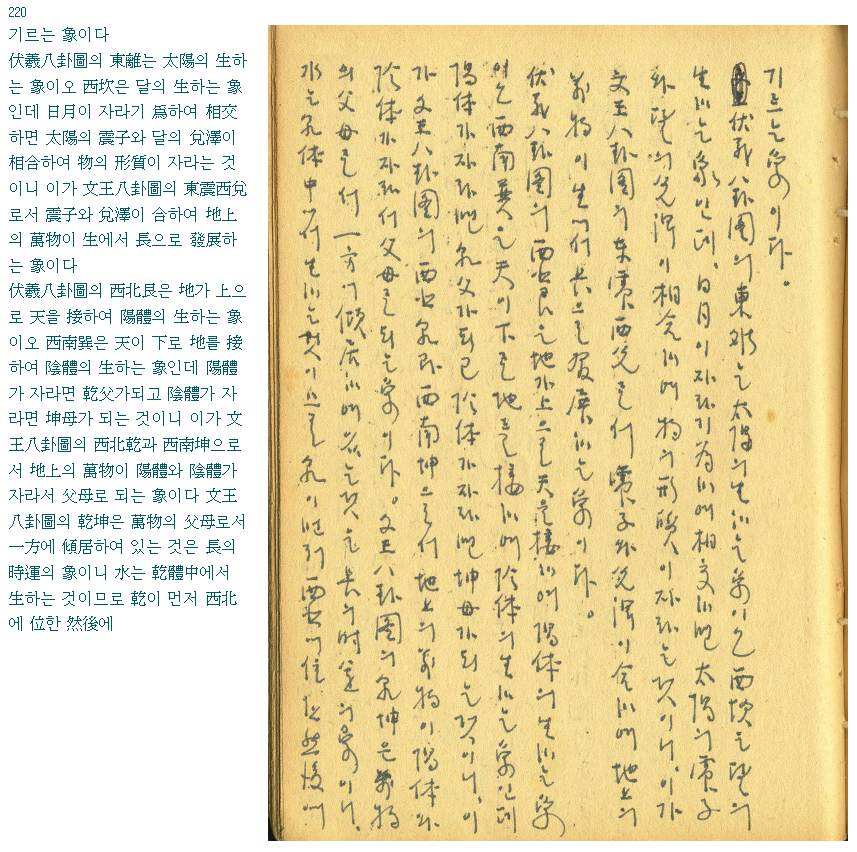 220
기르는 象이다
伏羲八卦圖의 東離는 太陽의 生하
는 象이오 西坎은 달의 生하는 象
인데 日月이 자라기 爲하여 相交
하면 太陽의 震子와 달의 兌澤이
相合하여 物의 形質이 자라는 것
이니 이가 文王八卦圖의 東震西兌
로서 震子와 兌澤이 合하여 地上
의 萬物이 生에서 長으로 發展하
는 象이다
伏羲八卦圖의 西北艮은 地가 上으
로 天을 接하여 陽體의 生하는 象
이오 西南巽은 天이 下로 地를 接
하여 陰體의 生하는 象인데 陽體
가 자라면 乾父가되고 陰體가 자
라면 坤母가 되는 것이니 이가 文
王八卦圖의 西北乾과 西南坤으로
서 地上의 萬物이 陽體와 陰體가
자라서 父母로 되는 象이다 文王
八卦圖의 乾坤은 萬物의 父母로서
一方에 傾居하여 있는 것은 長의
時運의 象이니 水는 乾體中에서
生하는 것이므로 乾이 먼저 西北
에 位한 然後에
기르는 象이다。
伏羲八卦圖의 東離는 太陽의 生하는 象이오 西坎은 달의
生하는 象인데, 日月이 자라기 爲하여 相交하면 太陽의 震子
와 달의 兌澤이 相合하여 物의 形質이 자라는 것이니, 이가
文王八卦圖의 东震西兌로서 震子와 兌澤이 合하여 地上의
萬物이 生에서 長으로 發展하는 象이다。
伏羲八卦圖의 西北艮은 地가 上으로 天을 接하여 陽体의 生하는 象
이오 西南巽은 天이 下로 地를 接하여 陰体의 生하는 象인데
陽体가 자라면 乾父가 되고 陰体가 자라면 坤母가 되는 것이니, 이
가 文王八卦圖의 西北乾과 西南坤으로서 地上의 萬物이 陽体와
陰体가 자라서 父母로 되는 象이다。文王八卦圖의 乾坤은 萬物
의 父母로서 一方에 傾居하여 있는 것은 長의 時運의 象이니,
水는 乾体中에서 生하는 것이므로 乾이 먼저 西北에 位한 然後에